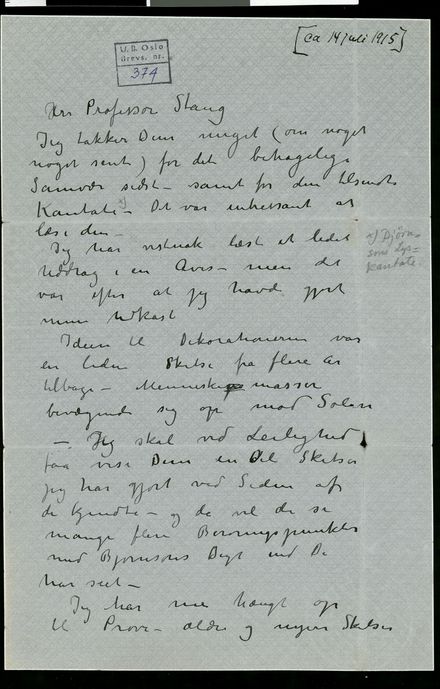 [ca 14 juli 1915]
U. B. Oslo
Brevs. nr.
374
Hrr Professor Stang
Jeg takker Dem meget (om noget
noget sent) for det behagelige
Samvær sidst – samt for den tilsendte
Kantate x) – Det var intressant at
læse den –
x) Bjørn-
sons Lys-
kantate.
Jeg har vistnok læst et lidet
Uddrag i en Avis – men det
var efter at jeg havd gjort
mine Udkast
Ideen til Dekorationerne var
en liden Skitse fra flere År
tilbage – Menneskemasser
bevægende sig op mod Solen
– Jeg skal ved Leilighed
faa vise Dem en Del Skitser
jeg har gjort ved Siden af
de kjendte – og da vil de se
mange flere Berøringspunkter
med Bjørnsons Digt end De
har seet –
Jeg har nu hængt op
til Prøve – ældre og nyere Skitser